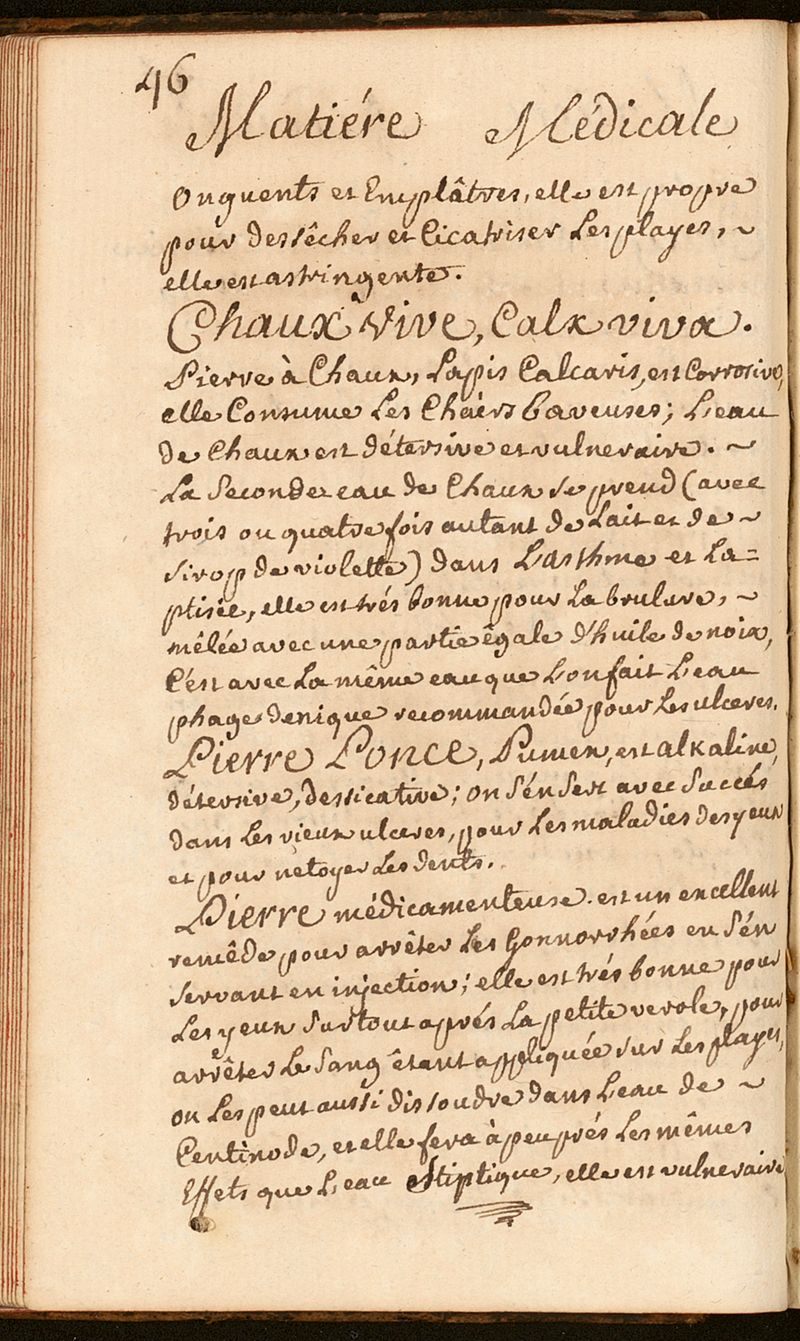 46
Matiére Médicale
Onguents et Emplâtres, elle est propre
pour dessêcher et Cicatriser Les playes, ~
elle est astringente.
Chaux vive, Calx viva.
Pierre à Chaux, Lapis Calcaris, est Corrosive,
elle Consume Les Chairs baveuses; L'eau
de Chaux est détersive et vulneraire. ~
La Seconde eau de Chaux se prend (avec
trois ou quatre fois autant de Lait et de ~
sirop de violette) dans L'asthme et La=
ptisie, elle est trés bonne pour La brulure, ~
mêlée avec une partie êgale d'huile de noix,
C'est avec La même eau que L'on fait L'eau
phagedenique recommandée pour Les ulceres.
Pierre Ponce, Pumex, est alkaline,
détersive, dessicative; on s'én sert avec Succés
dans Les vieux ulceres, pour Les maladies des yeux
et pour netoyer Les dents.
Pierre médicamenteuse. est un excellent
remêde pour arrêter Les Gonnorrhées en s'én
servant en injection; elle est trés bonne pour
Les yeux surtout aprés La petite verole, pour
arrêter Le Sang êtant appliquée sur Les playes,
on Les peut aussi dissoudre dans L'eau de ~
Centinode, et elle fera à peu prés Les mêmes
Effets que L'eau Stiptique, elle est vulneraire